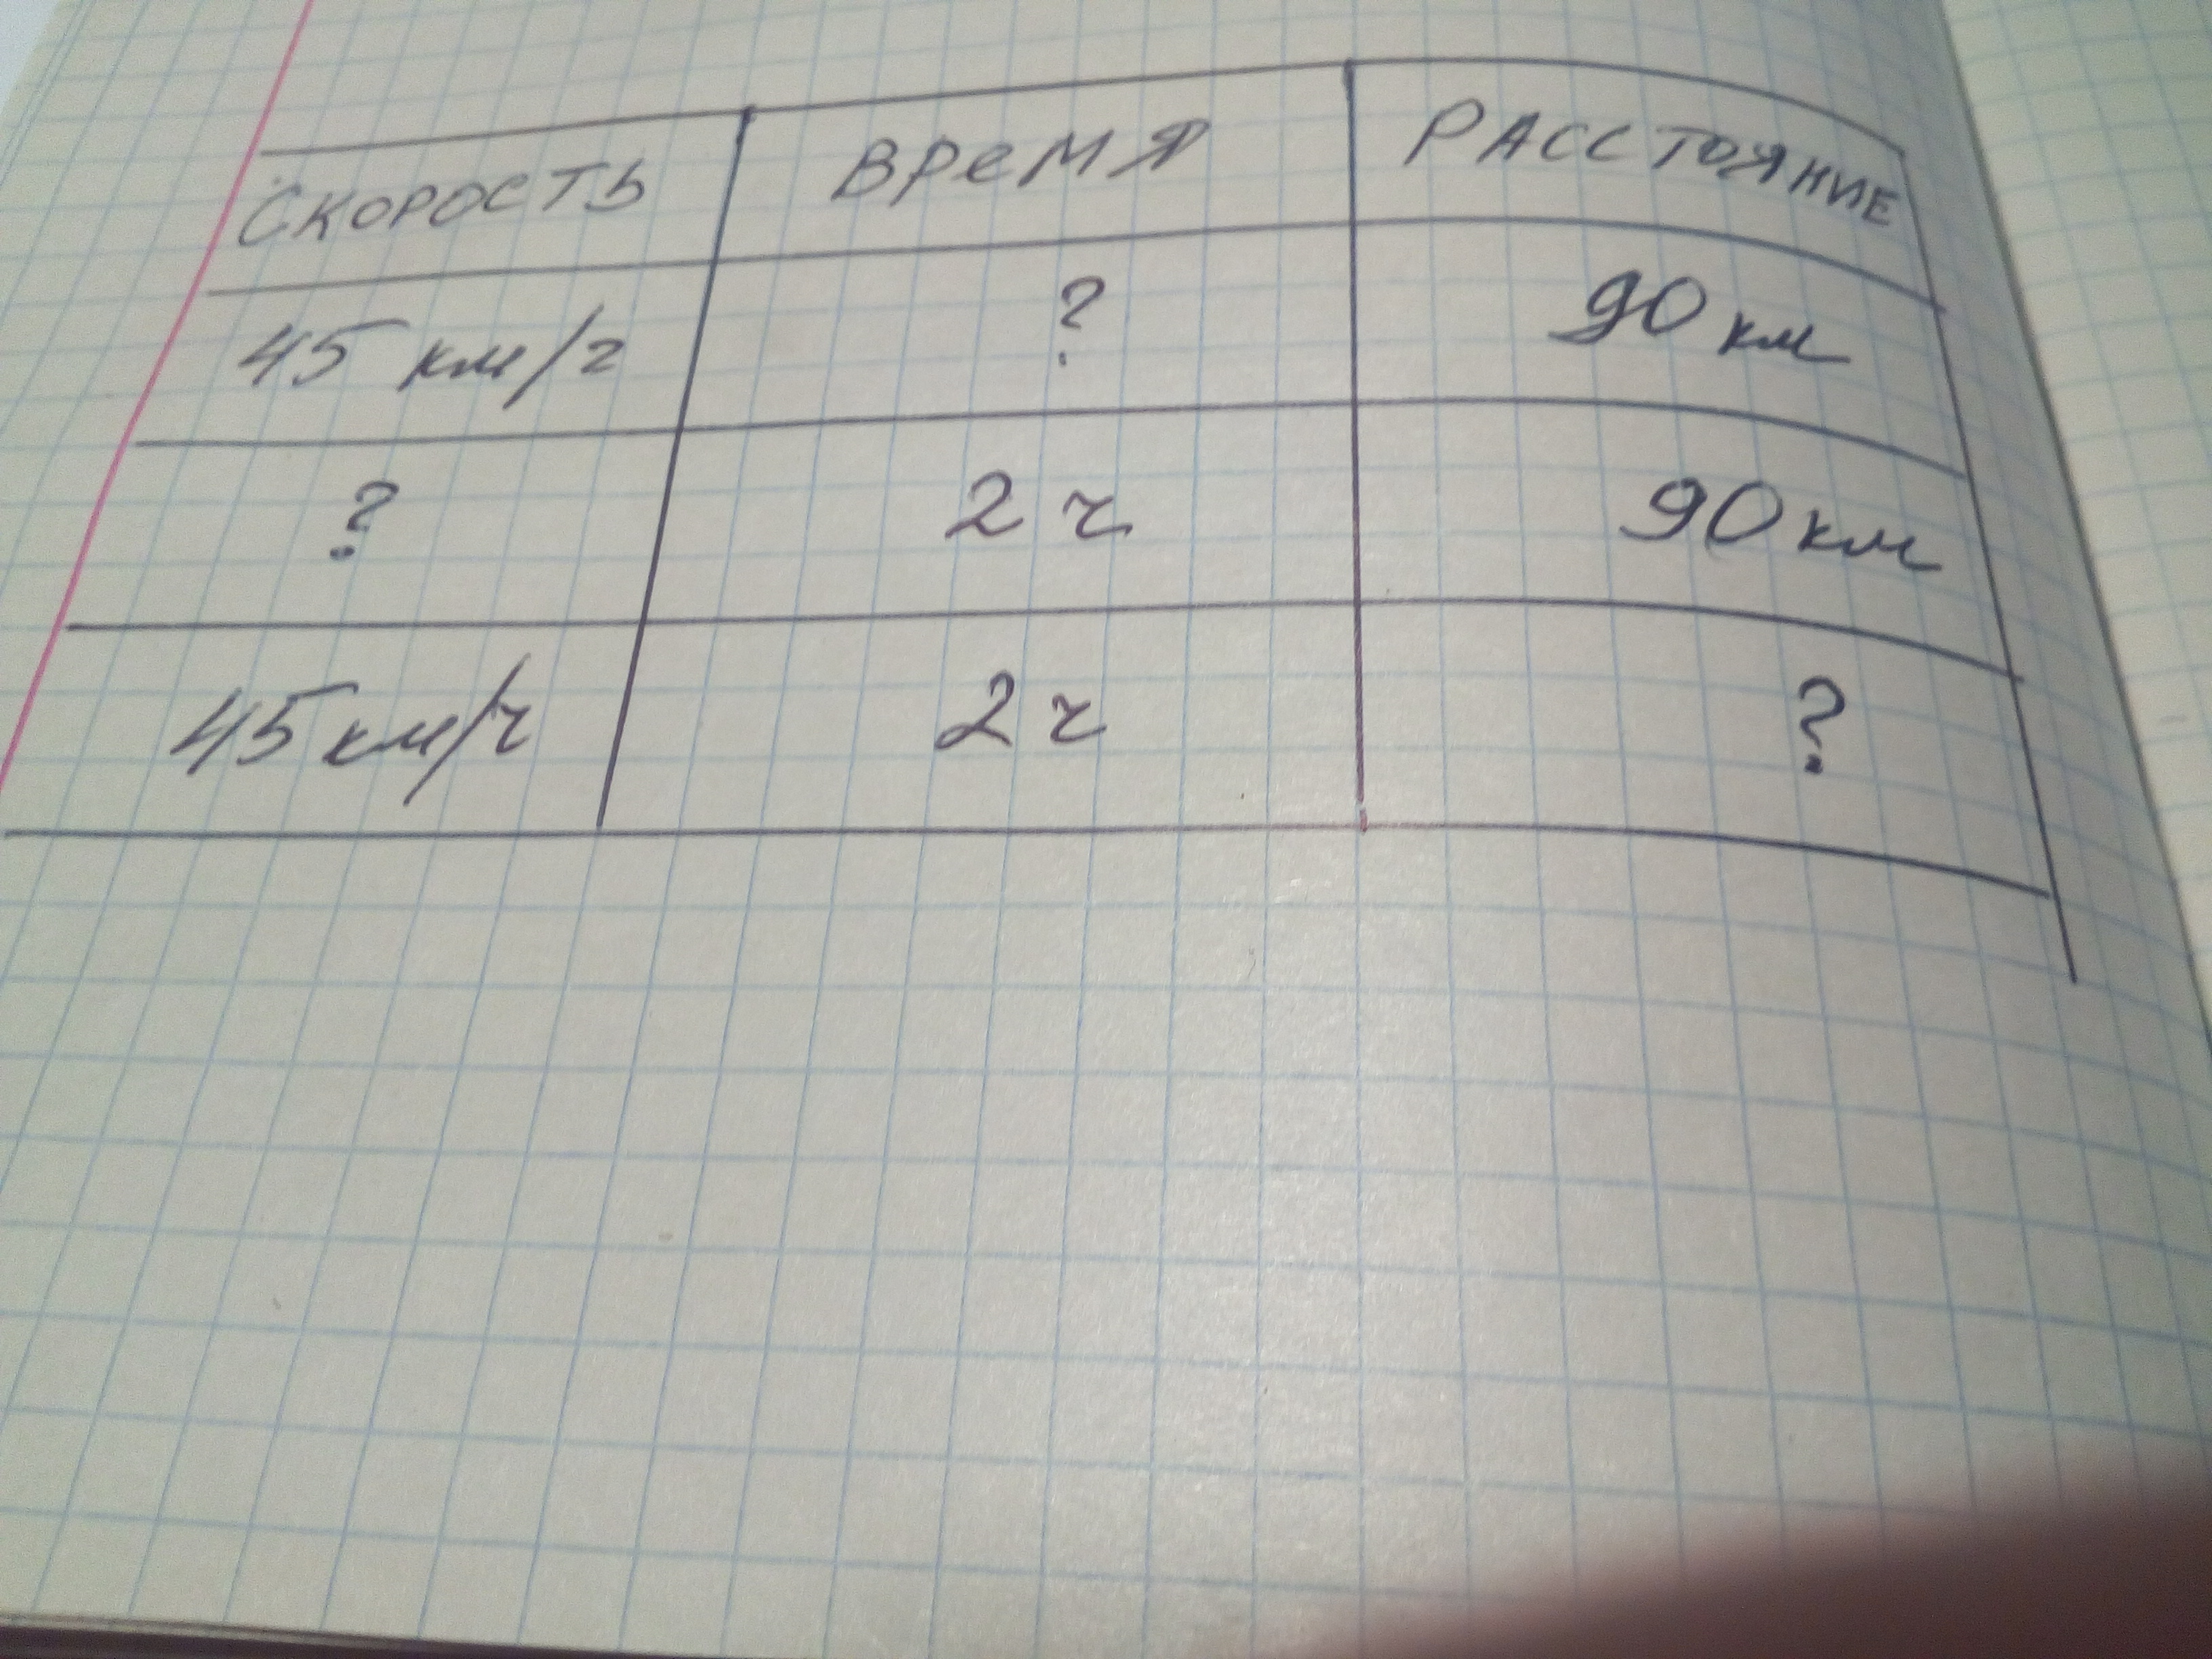 СКОРОСТЬ ВРЕМЯ РАССТОЯНИЕ
45 км/ч ? 90 км
? 2 ч 90 км
45 км/ч 2 ч ?